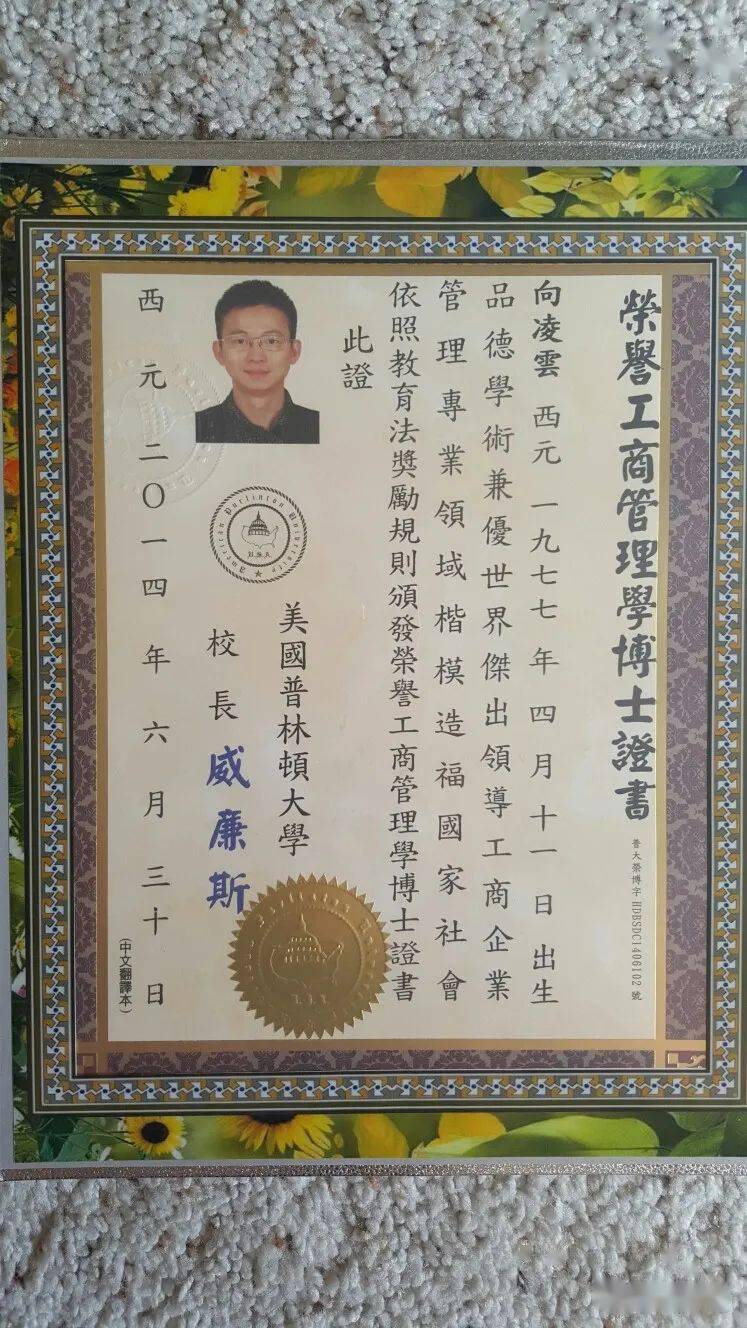 榮譽工商管理學博士證書
普大榮博字 HDBSDC1406102 號
向凌雲 西元 一九七七年四月十一日出生
品德學術兼優世界傑出領導工商企業
管理專業領域楷模造福國家社會
依照教育法獎勵規則頒發榮譽工商管理學博士證書
此證
美國普林頓大學
校長 威廉斯
American Purlinton University
U.S.A.
西元二〇一四年六月三十日
(中文翻譯本)